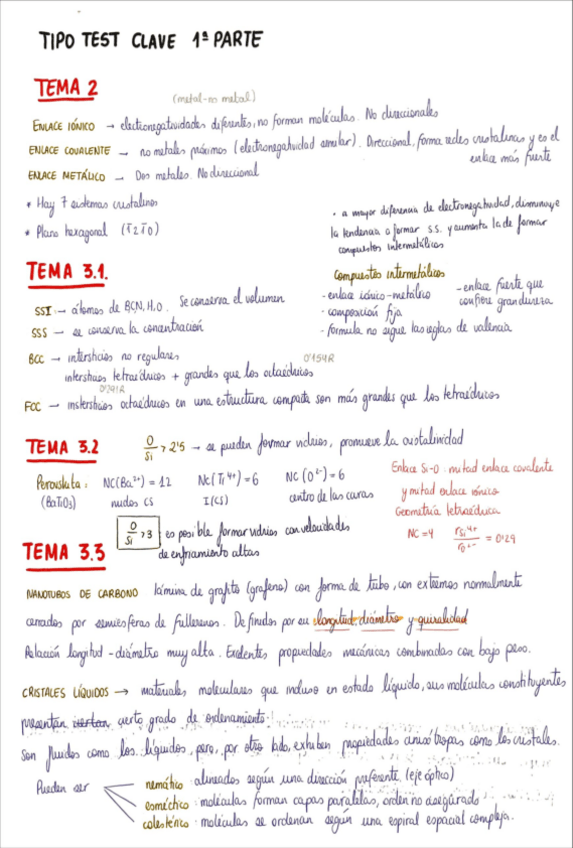 TIPO TEST CLAVE 1ª PARTE
TEMA 2
(metal-no metal)
ENLACE IÓNICO → electronegatividades diferentes, no forman moléculas. No direccionales
ENLACE COVALENTE → no metales próximos (electronegatividad similar). Direccional, forma redes cristalinas y es el
enlace más fuerte
ENLACE METÁLICO → Dos metales. No direccional
* Hay 7 sistemas cristalinos
* Plano hexagonal (1̄ 2 1̄ 0)
• a mayor diferencia de electronegatividad, disminuye
la tendencia a formar s.s. y aumenta la de formar
compuestos intermetálicos
TEMA 3.1.
Compuestos intermetálicos
- enlace iónico-metálico
- composición fija
- formula no sigue las reglas de valencia
- enlace fuerte que
confiere gran dureza
SSI → átomos de B,C,N,H,O. Se conserva el volumen
SSS → se conserva la concentración
BCC → intersticios no regulares
intersticios tetraédricos + grandes que los octaédricos
0'291R
0'154R
FCC → intersticios octaédricos en una estructura compacta son más grandes que los tetraédricos
TEMA 3.2
O/Si > 2'5 → se pueden formar vidrios, promueve la cristalinidad
Perovskita: NC(Ba²⁺) = 12 NC(Ti⁴⁺) = 6 NC(O²⁻) = 6
(BaTiO₃) nudos CS I(CS) centro de las caras
Enlace Si-O: mitad enlace covalente
y mitad enlace iónico
Geometría tetraédrica
NC = 4 rSi⁴⁺/rO²⁻ = 0'29
O/Si > 3 es posible formar vidrios con velocidades
de enfriamiento altas
TEMA 3.3
NANOTUBOS DE CARBONO lámina de grafito (grafeno) con forma de tubo, con extremos normalmente
cerrados por semiesferas de fullerenos. Definidos por su longitud, diámetro y quiralidad
Relación longitud-diámetro muy alta. Excelentes propiedades mecánicas combinadas con bajo peso.
CRISTALES LÍQUIDOS → materiales moleculares que incluso en estado líquido, sus moléculas constituyentes
presentan cierto grado de ordenamiento.
Son fluidos como los líquidos, pero, por otro lado, exhiben propiedades anisótropas como los cristales.
Pueden ser
nemático: alineados según una dirección preferente (eje óptico)
esméctico: moléculas forman capas paralelas, orden no asegurado
colestérico: moléculas se ordenan según una espiral espacial compleja.